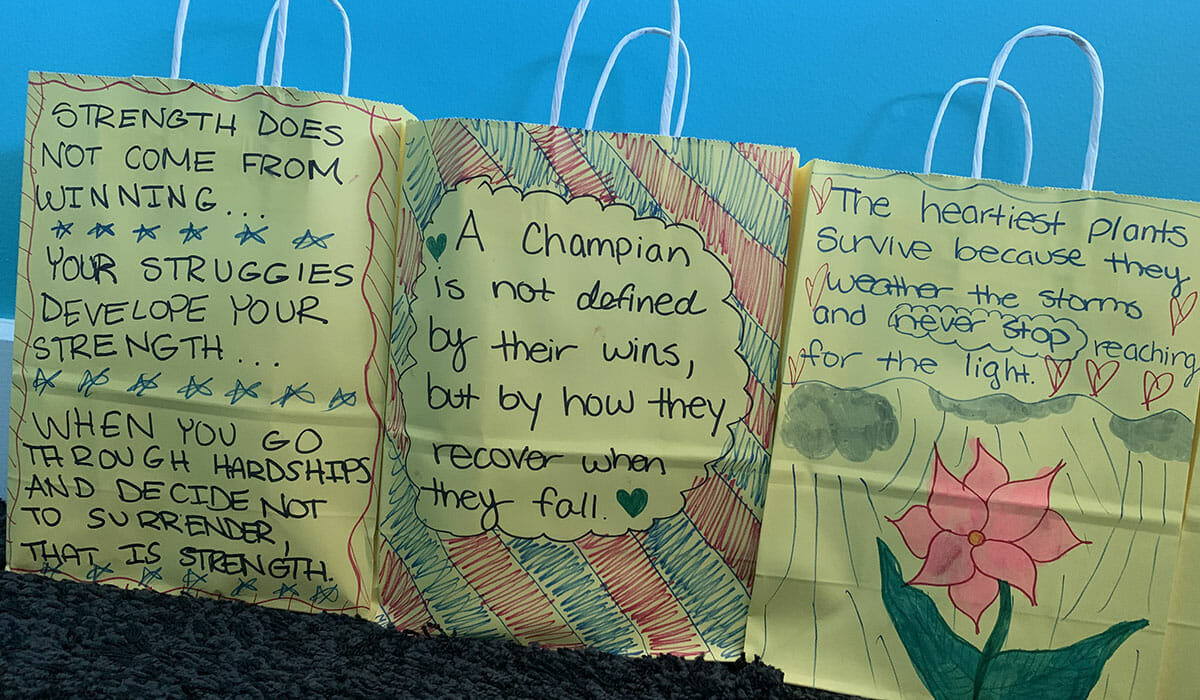 STRENGTH DOES
NOT COME FROM
WINNING...
YOUR STRUGGIES
DEVELOPE YOUR
STRENGTH...
WHEN YOU GO
THROUGH HARDSHIPS
AND DECIDE NOT
TO SURRENDER,
THAT IS STRENGTH.
A Champian
is not defined
by their wins,
but by how they
recover when
they fall.
The heartiest plants
survive because they
weather the storms
and never stop reaching
for the light.